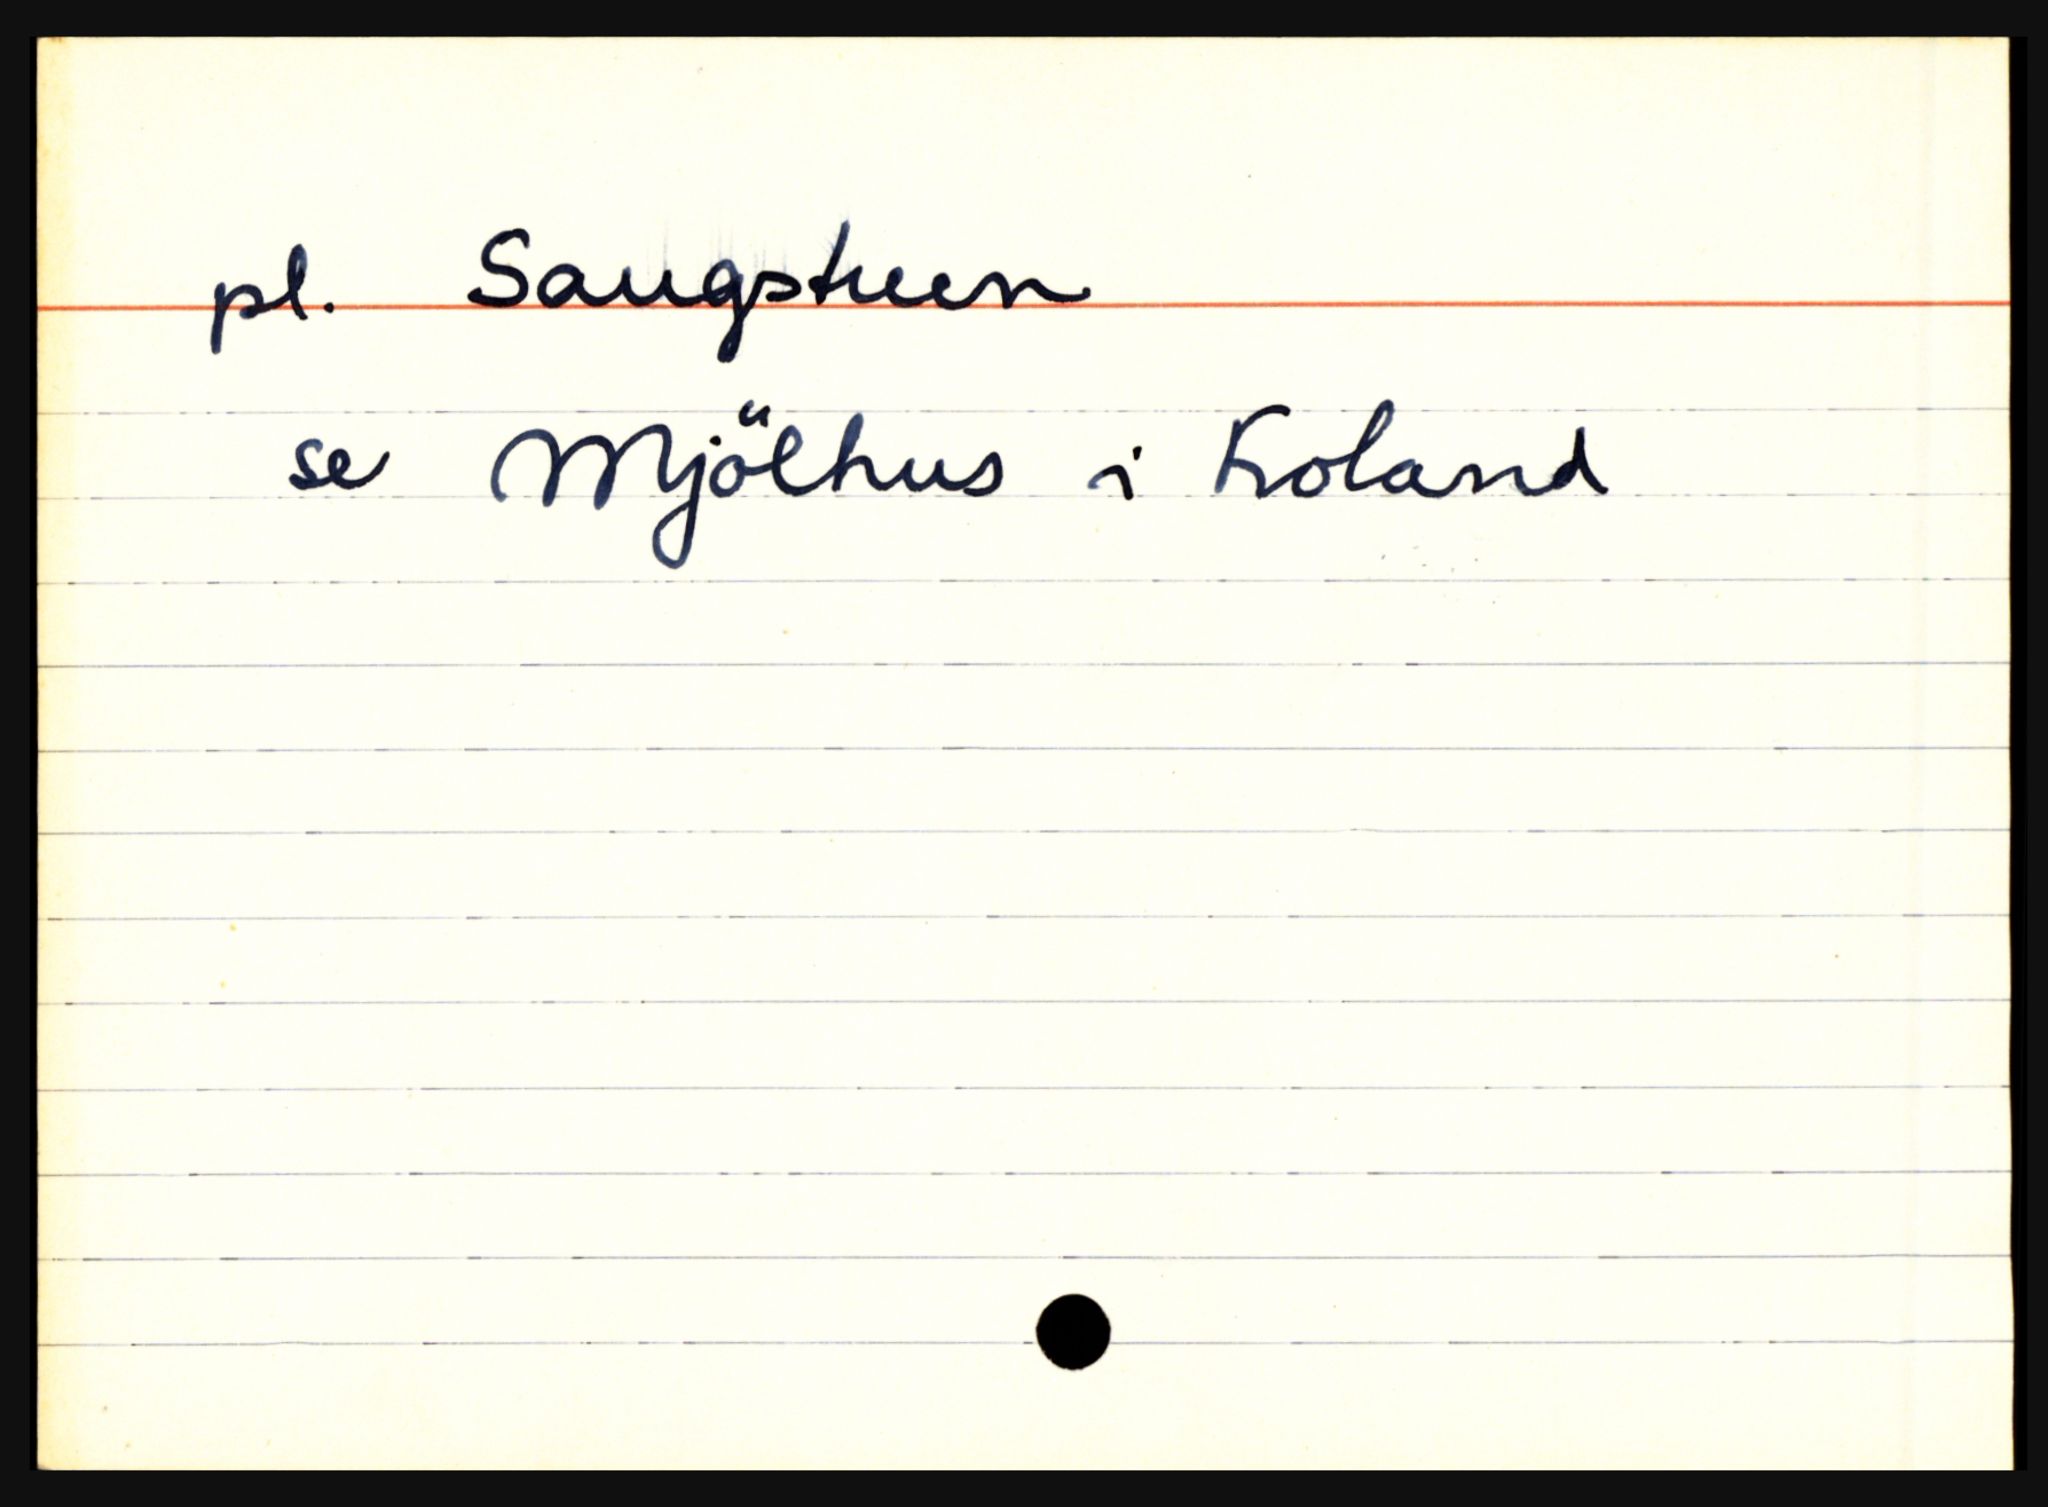 pl. Saugstuen
se Mjölhus i Froland